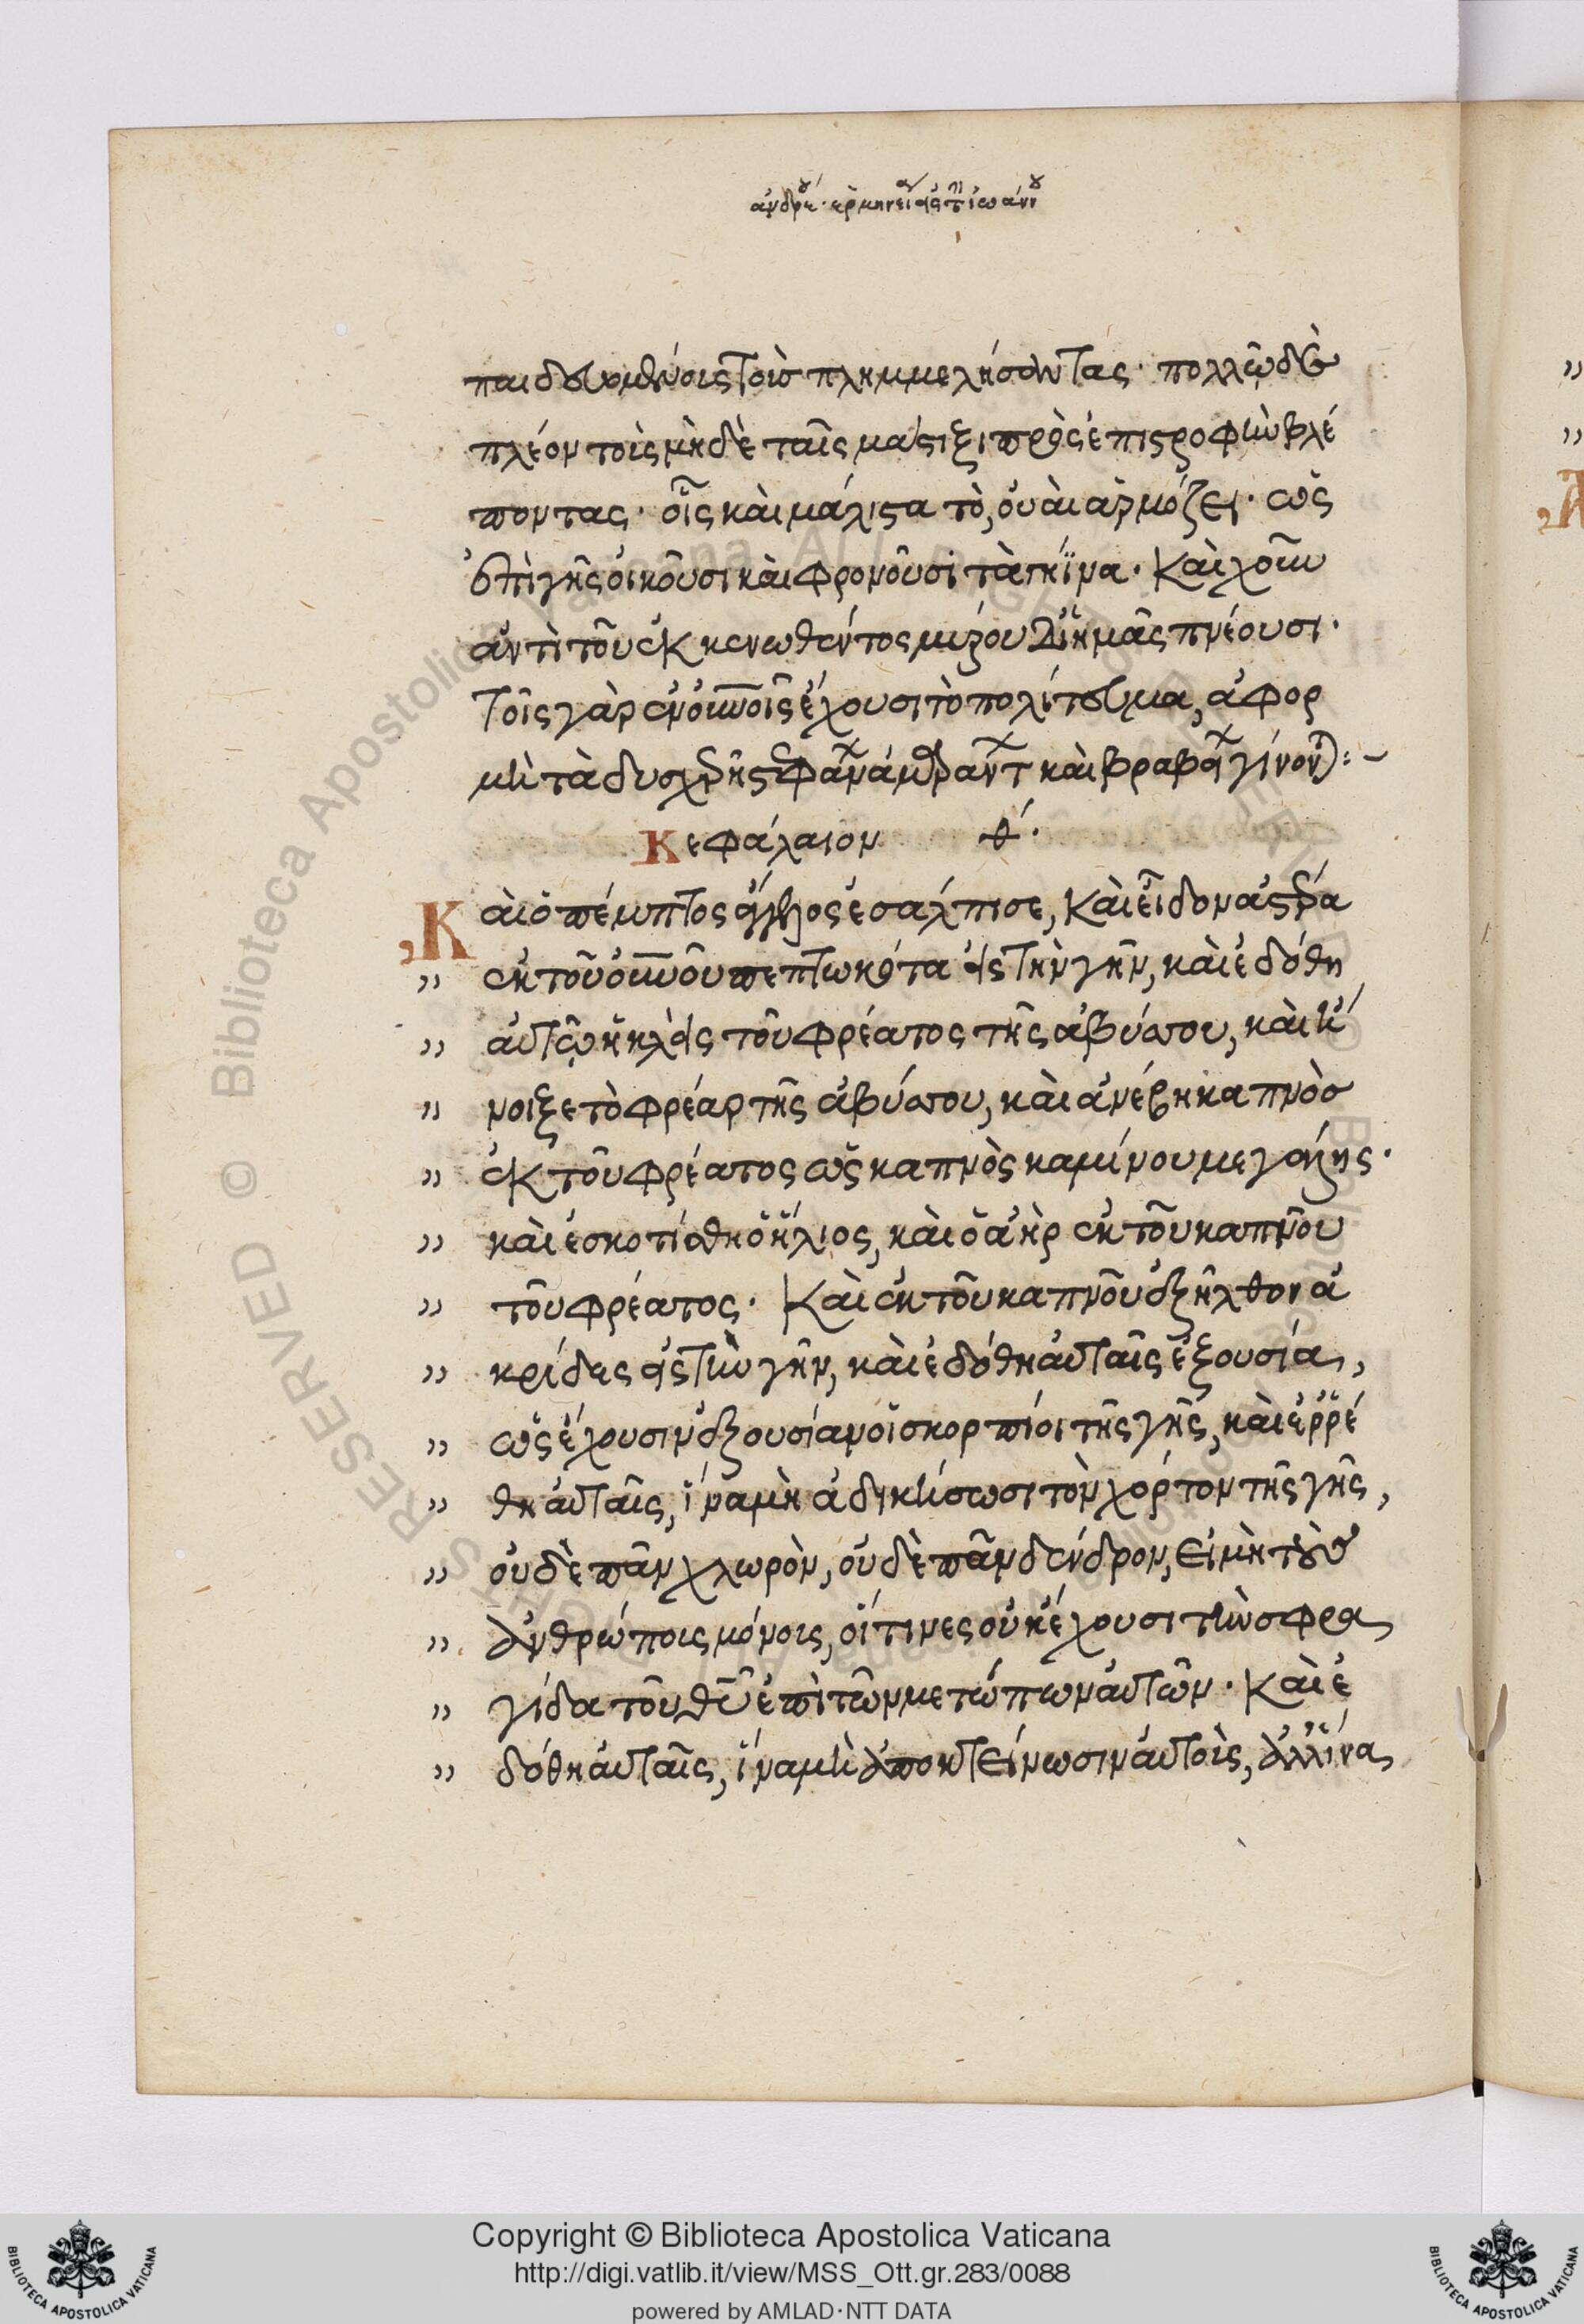 ἀνδρέου ἑρμηνεία εἰς τὴν ἰωάννου
παιδευομένοις τοῖς πλημμελήσαντας· πολλῷ δὲ
πλέον τοῖς μὴδὲ ταῖς μάστιξι πρὸς ἐπιστροφὴν βλέ
ποντας· οἷς καὶ μάλιστα τὸ, οὐαὶ ἁρμόζει· ὡς
ἐπὶ γῆς οἰκοῦσι καὶ φρονοῦσι τὰ γήϊνα· Καὶ χοῦν
ἀντὶ τοῦ ἐκκενωθέντος μύρου δι' ἡμᾶς πνέουσι·
Τοῖς γὰρ ἐν οὐνοῖς ἔχουσι τὸ πολίτευμα, ἀφορ
μὴ τὰ δυσχερῆ στεφάνων ἀμαράντων καὶ βραβείων γίνονται:~
Κεφάλαιον θ΄.
Καὶ ὁ πέμπτος ἄγγελος ἐσάλπισε, Καὶ εἶδον ἀστέρα
" ἐκ τοῦ οὐνοῦ πεπτωκότα εἰς τὴν γῆν, καὶ ἐδόθη
" αὐτῷ ἡ κλεὶς τοῦ φρέατος τῆς ἀβύσσου, καὶ ἤ
" νοιξε τὸ φρέαρ τῆς ἀβύσσου, καὶ ἀνέβη καπνὸσ
" ἐκ τοῦ φρέατος ὡς καπνὸς καμίνου μεγάλης·
" καὶ ἐσκοτίσθη ὁ ἥλιος, καὶ ὁ ἀὴρ ἐκ τοῦ καπνοῦ
" τοῦ φρέατος· Καὶ ἐκ τοῦ καπνοῦ ἐξῆλθον ἀ
" κρίδες εἰς τὴν γῆν, καὶ ἐδόθη αὐταῖς ἐξουσία,
" ὡς ἔχουσιν ἐξουσίαν οἱ σκορπίοι τῆς γῆς, καὶ ἐῤῥέ
" θη αὐταῖς, ἵνα μὴ ἀδικήσωσι τὸν χόρτον τῆς γῆς,
" οὐδὲ πᾶν χλωρὸν, οὐδὲ πᾶν δένδρον, εἰ μὴ τοὺς
" ἀνθρώποις μόνοις, οἵτινες οὐκ ἔχουσι τὴν σφρα
" γίδα τοῦ θυ ἐπὶ τῶν μετώπων αὐτῶν· Καὶ ἐ
" δόθη αὐταῖς, ἵνα μὴ ἀποκτείνωσιν αὐτοὶς, ἀλλ' ἵνα
Copyright © Biblioteca Apostolica Vaticana
http://digi.vatlib.it/view/MSS_Ott.gr.283/0088
powered by AMLAD·NTT DATA